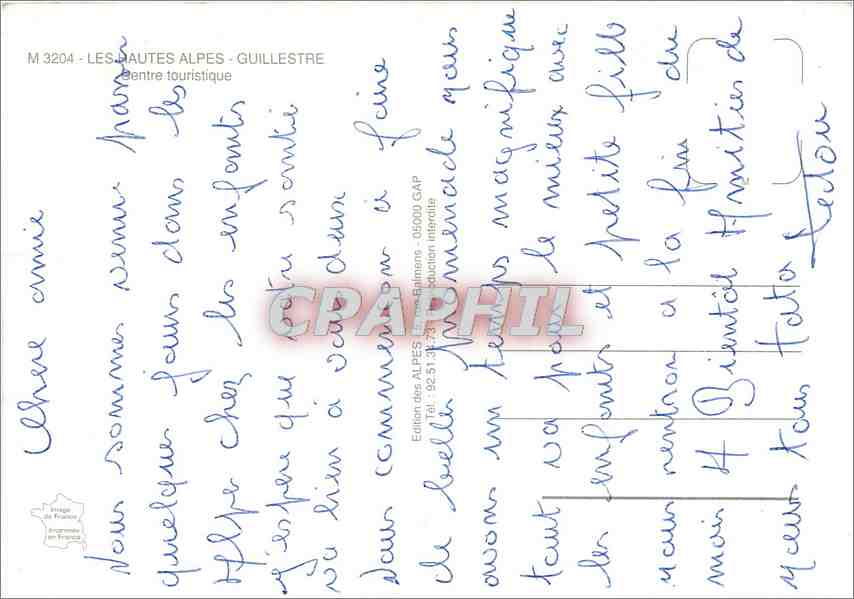 M 3204 - LES HAUTES ALPES - GUILLESTRE
Centre touristique
Image
de France
Imprimée
en France
Edition des ALPES - rue Balmens - 05000 GAP
Tél. : 92.51.34.73 Reproduction interdite
CPAPHIL
Chere amie
Nous sommes venue passer
quelques jours dans les
Alpes chez les enfants
j'espère que votre santé
va bien à vous deux
Nous commencon a faire
de belles Promenade nous
avons un temps magnifique
tout va pour le mieux avec
les enfants et petite fille
nous rentron a la fin du
mois A Bientôt Amitiés de
nous tous Tata